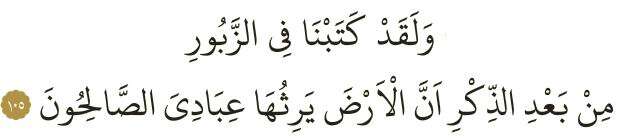 وَلَقَدْ كَتَبْنَا فِى الزَّبُورِ
مِنْ بَعْدِ الذِّكْرِ اَنَّ الْاَرْضَ يَرِثُهَا عِبَادِىَ الصَّالِحُونَ ١٠٥